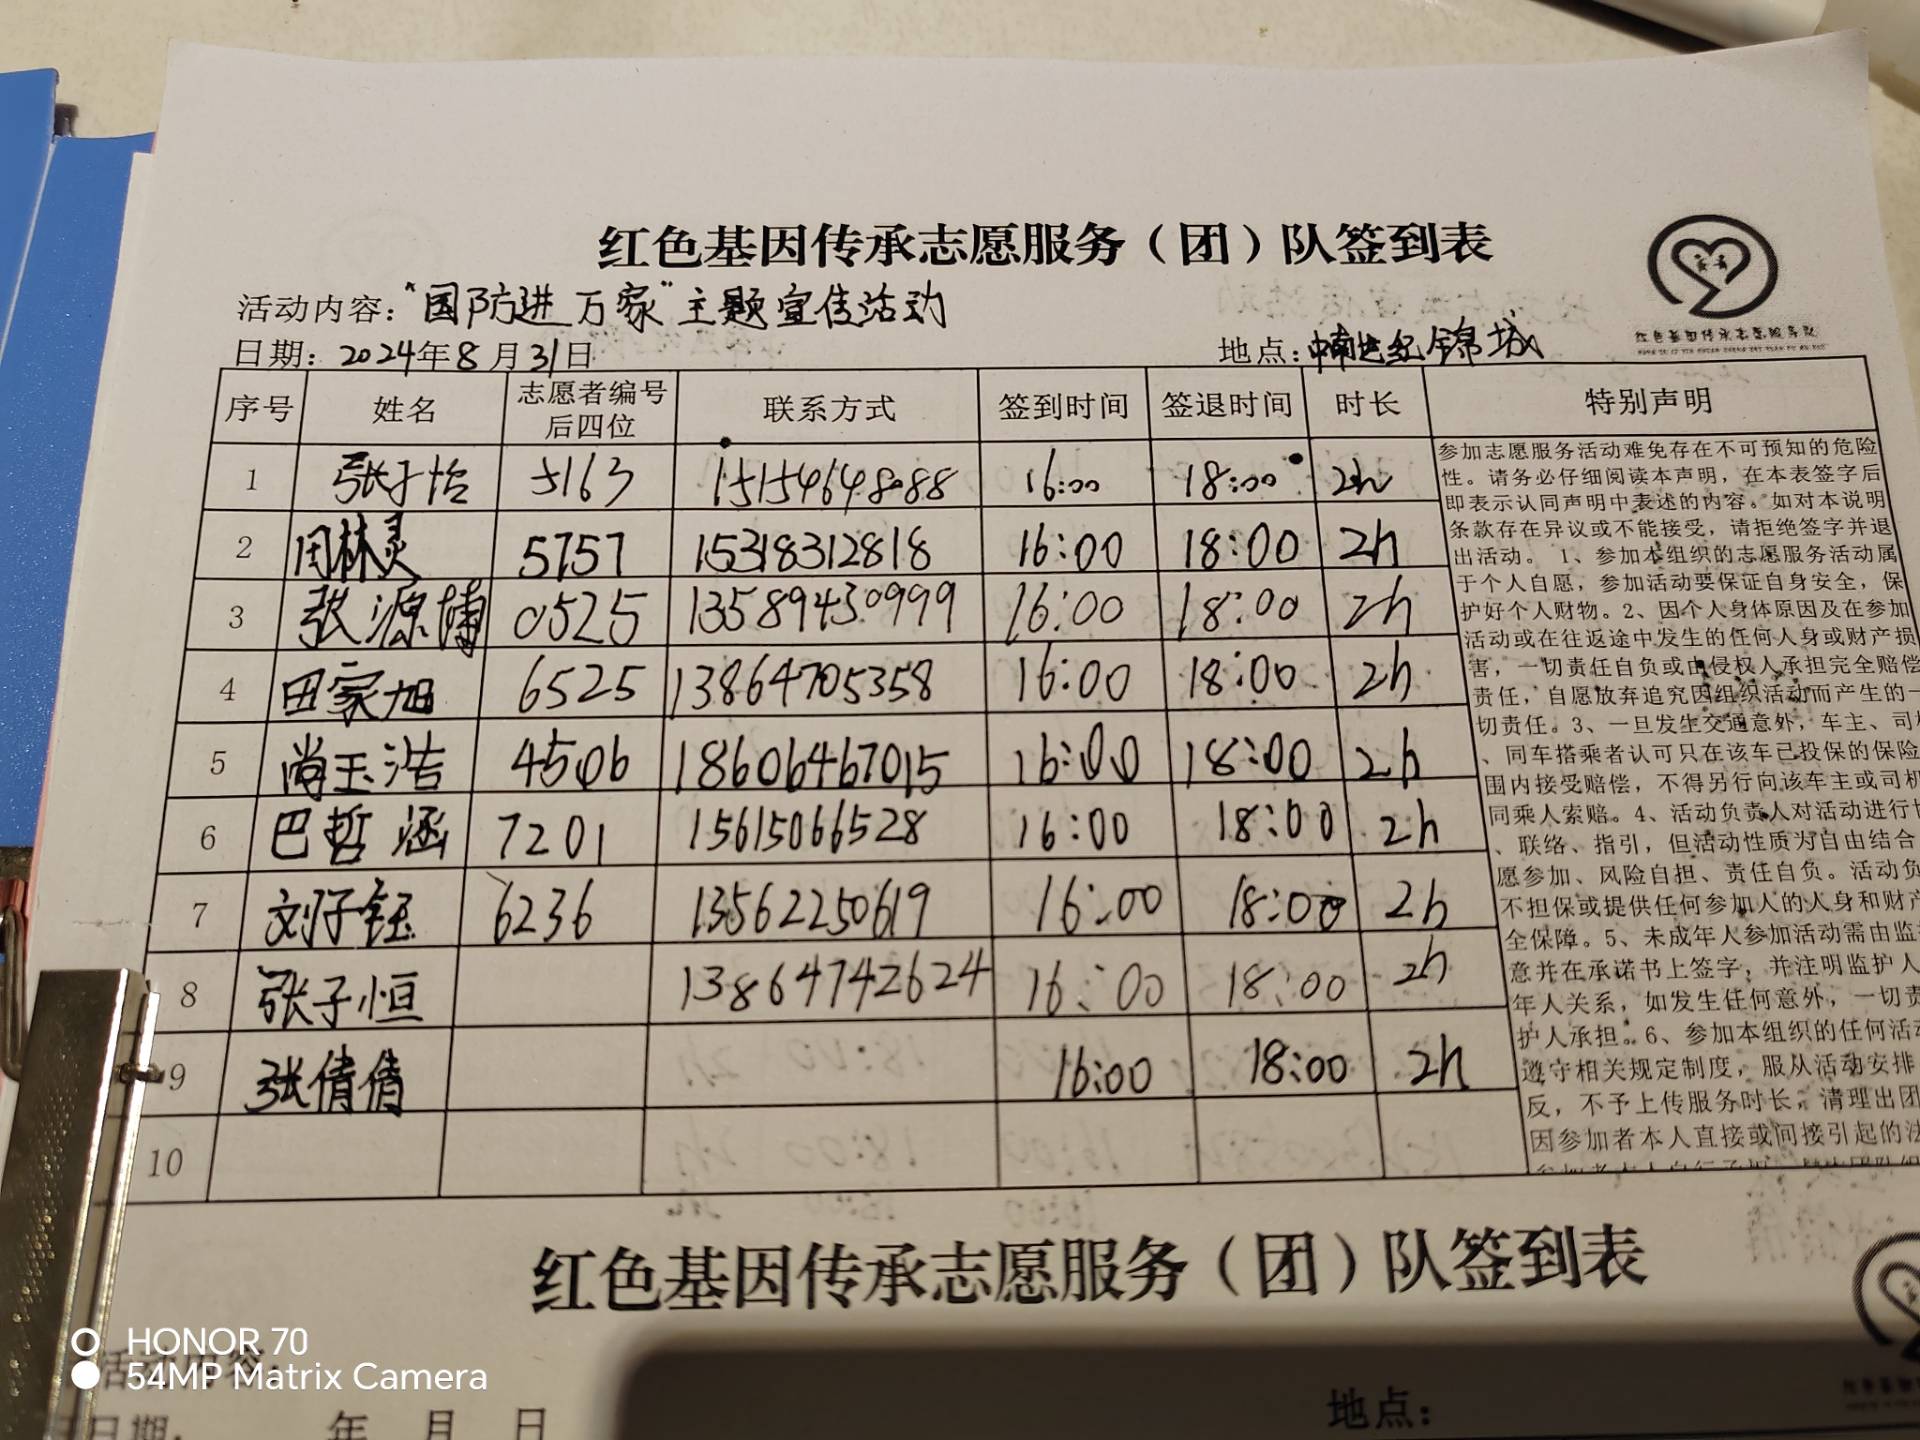 红色基因传承志愿服务（团）队签到表
活动内容："国防进万家"主题宣传活动
日期：2024年8月31日 地点：中南世纪锦城
红色基因传承志愿服务队
序号 姓名 志愿者编号后四位 联系方式 签到时间 签退时间 时长 特别声明
1 张子怡 5163 15154648088 16:00 18:00 2h
2 闭林灵 5757 15318312818 16:00 18:00 2h
3 张源博 0525 13589430999 16:00 18:00 2h
4 田家旭 6525 13864705358 16:00 18:00 2h
5 尚玉浩 4506 18606467015 16:00 18:00 2h
6 巴哲涵 7201 15615066528 16:00 18:00 2h
7 刘子钰 6236 13562250619 16:00 18:00 2h
8 张子恒 13864742624 16:00 18:00 2h
9 张倩倩 16:00 18:00 2h
10
参加志愿服务活动难免存在不可预知的危险
性。请务必仔细阅读本声明，在本表签字后
即表示认同声明中表述的内容。如对本说明
条款存在异议或不能接受，请拒绝签字并退
出活动。 1、参加本组织的志愿服务活动属
于个人自愿，参加活动要保证自身安全，保
护好个人财物。2、因个人身体原因及在参加
活动或在往返途中发生的任何人身或财产损
害，一切责任自负或由侵权人承担完全赔偿
责任，自愿放弃追究因组织活动而产生的一
切责任。3、一旦发生交通意外，车主、司
、同车搭乘者认可只在该车已投保的保险
围内接受赔偿，不得另行向该车主或司机
同乘人索赔。4、活动负责人对活动进行
、联络、指引，但活动性质为自由结合
愿参加、风险自担、责任自负。活动负
不担保或提供任何参加人的人身和财产
全保障。5、未成年人参加活动需由监
意并在承诺书上签字，并注明监护人
年人关系，如发生任何意外，一切责
护人承担。6、参加本组织的任何活动
遵守相关规定制度，服从活动安排
反，不予上传服务时长，清理出团
因参加者本人直接或间接引起的法
红色基因传承志愿服务（团）队签到表
活动内容：
日期： 年 月 日 地点：
HONOR 70
54MP Matrix Camera